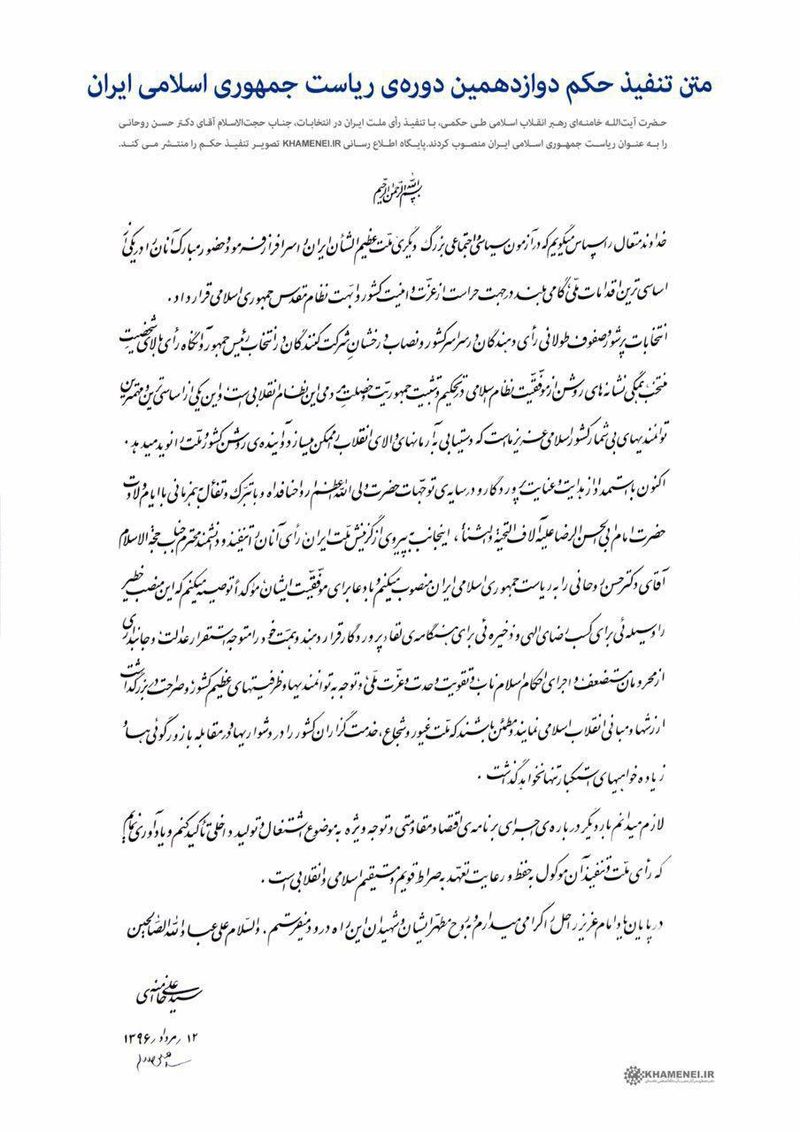 متن تنفیذ حکم دوازدهمین دوره‌ی ریاست جمهوری اسلامی ایران
حضرت آیت‌الله خامنه‌ای رهبر انقلاب اسلامی طی حکمی، با تنفیذ رأی ملت ایران در انتخابات، جناب حجت‌الاسلام آقای دکتر حسن روحانی
را به عنوان ریاست جمهوری اسلامی ایران منصوب کردند.پایگاه اطلاع رسانی KHAMENEI.IR تصویر تنفیذ حکم را منتشر می کند.
بسم الله الرحمن الرحیم
خداوند متعال را سپاس میگویم که در آزمون سیاسی و اجتماعی بزرگ دیگری ملت عظیم‌الشأن ایران را سرافراز فرمود و حضور مبارک آنان را در یکی از
اساسی‌ترین اقدامات ملی گامی بلند در جهت حراست از عزت و امنیت کشور و ابهت نظام مقدس جمهوری اسلامی قرار داد.
انتخابات پرشور و صفوف طولانی رأی دهندگان در سراسر کشور و نصاب درخشان شرکت کنندگان در انتخاب رئیس جمهور و آنگاه رأی بالای شخصیت
منتخب همگی نشانه‌های روشن از موفقیت نظام اسلامی در تحکیم و تثبیت جمهوریت و خصلت مردمی این نظام انقلابی است و این یکی از اساسی‌ترین و مهمترین
توانمندیهای بی‌شمار کشور اسلامی عزیز ما است که دستیابی به آرمانهای والای انقلاب را ممکن میسازد و آینده‌ی روشن کشور و ملت را نوید میدهد.
اکنون با استمداد از هدایت و عنایت پروردگار و در سایه‌ی توجهات حضرت ولی الله الاعظم ارواحنا فداه و با تبرک و تفأل به همزمانی با ایام ولادت
حضرت امام ابی‌الحسن الرضا علیه آلاف التحیة والثناء، اینجانب به پیروی از گزینش ملت ایران رأی آنان را تنفیذ و دانشمند محترم جناب حجةالاسلام
آقای دکتر حسن روحانی را به ریاست جمهوری اسلامی ایران منصوب میکنم و با دعا برای موفقیت ایشان مؤکداً توصیه میکنم که این منصب خطیر
را وسیله‌ئی برای کسب رضای الهی و ذخیره‌ئی برای هنگامه‌ی لقاء پروردگار قرار دهند و همت خود را متوجه استقرار عدالت و جانبداری
از محرومان و مستضعف و اجرای احکام اسلام ناب و تقویت وحدت و عزت ملی و توجه به توانمندیها و ظرفیتهای عظیم کشور و صراحت در بزرگداشت
ارزشها و مبانی انقلاب اسلامی نمایند و مطمئن باشند که ملت غیور و شجاع، خدمتگزاران کشور را در دشواریها و در مقابله با زورگوئی‌ها و
زیاده خواهیهای استکبار تنها نخواهد گذاشت.
لازم میدانم بار دیگر درباره‌ی اجرای برنامه‌ی اقتصاد مقاومتی و توجه ویژه به موضوع اشتغال و تولید داخلی تأکید کنم و یادآوری نمایم
که رأی ملت و تنفیذ آن موکول به حفظ و رعایت تعهد به صراط قویم و مستقیم اسلامی و انقلابی است.
در پایان یاد امام عزیز راحل را گرامی میدارم و به روح مطهر ایشان و شهیدان این راه درود میفرستم. والسلام علی عباد الله الصالحین
سید علی خامنه‌ای
۱۲ مرداد ۱۳۹۶
KHAMENEI.IR